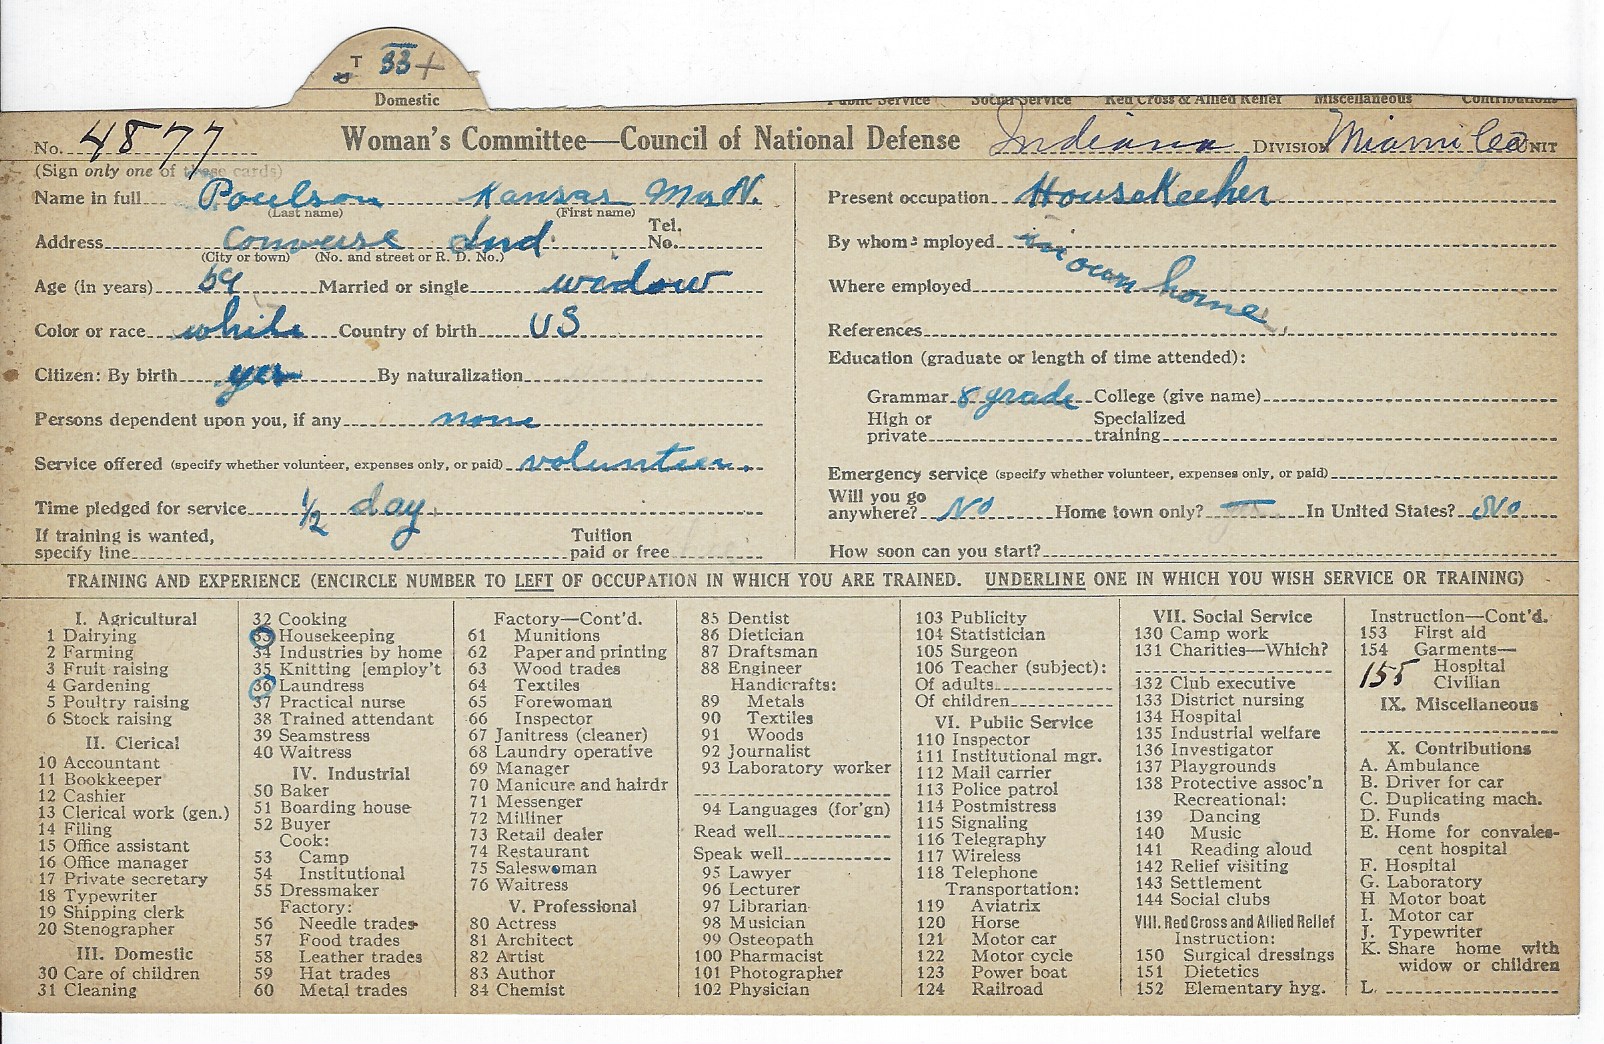 T 33 +
Domestic
Public Service Social Service Red Cross & Allied Relief Miscellaneous Contributions
No. 4877 Woman's Committee—Council of National Defense Indiana DIVISION Miami Co UNIT
(Sign only one of these cards)
Name in full Poulson Kansas Mrs N.
(Last name) (First name)
Address Converse Ind. Tel. No.
(City or town) (No. and street or R. D. No.)
Age (in years) 59 Married or single widow
Color or race white Country of birth US
Citizen: By birth yes By naturalization
Persons dependent upon you, if any none
Service offered (specify whether volunteer, expenses only, or paid) volunteer.
Time pledged for service 1/2 day
If training is wanted, specify line Tuition paid or free
Present occupation HouseKeeher
By whom employed in
own home
Where employed
References
Education (graduate or length of time attended):
Grammar 8 grade College (give name)
High or private Specialized training
Emergency service (specify whether volunteer, expenses only, or paid)
Will you go anywhere? No Home town only? In United States? No
How soon can you start?
TRAINING AND EXPERIENCE (ENCIRCLE NUMBER TO LEFT OF OCCUPATION IN WHICH YOU ARE TRAINED. UNDERLINE ONE IN WHICH YOU WISH SERVICE OR TRAINING)
I. Agricultural
1 Dairying
2 Farming
3 Fruit raising
4 Gardening
5 Poultry raising
6 Stock raising
II. Clerical
10 Accountant
11 Bookkeeper
12 Cashier
13 Clerical work (gen.)
14 Filing
15 Office assistant
16 Office manager
17 Private secretary
18 Typewriter
19 Shipping clerk
20 Stenographer
III. Domestic
30 Care of children
31 Cleaning
32 Cooking
33 Housekeeping
34 Industries by home
35 Knitting [employ't
36 Laundress
37 Practical nurse
38 Trained attendant
39 Seamstress
40 Waitress
IV. Industrial
50 Baker
51 Boarding house
52 Buyer
Cook:
53 Camp
54 Institutional
55 Dressmaker
Factory:
56 Needle trades
57 Food trades
58 Leather trades
59 Hat trades
60 Metal trades
Factory—Cont'd.
61 Munitions
62 Paper and printing
63 Wood trades
64 Textiles
65 Forewoman
66 Inspector
67 Janitress (cleaner)
68 Laundry operative
69 Manager
70 Manicure and hairdr
71 Messenger
72 Milliner
73 Retail dealer
74 Restaurant
75 Saleswoman
76 Waitress
V. Professional
80 Actress
81 Architect
82 Artist
83 Author
84 Chemist
85 Dentist
86 Dietician
87 Draftsman
88 Engineer
Handicrafts:
89 Metals
90 Textiles
91 Woods
92 Journalist
93 Laboratory worker
94 Languages (for'gn)
Read well
Speak well
95 Lawyer
96 Lecturer
97 Librarian
98 Musician
99 Osteopath
100 Pharmacist
101 Photographer
102 Physician
103 Publicity
104 Statistician
105 Surgeon
106 Teacher (subject):
Of adults
Of children
VI. Public Service
110 Inspector
111 Institutional mgr.
112 Mail carrier
113 Police patrol
114 Postmistress
115 Signaling
116 Telegraphy
117 Wireless
118 Telephone
Transportation:
119 Aviatrix
120 Horse
121 Motor car
122 Motor cycle
123 Power boat
124 Railroad
VII. Social Service
130 Camp work
131 Charities—Which?
132 Club executive
133 District nursing
134 Hospital
135 Industrial welfare
136 Investigator
137 Playgrounds
138 Protective assoc'n
Recreational:
139 Dancing
140 Music
141 Reading aloud
142 Relief visiting
143 Settlement
144 Social clubs
VIII. Red Cross and Allied Relief
Instruction:
150 Surgical dressings
151 Dietetics
152 Elementary hyg.
Instruction—Cont'd.
153 First aid
154 Garments—
155 Hospital
Civilian
IX. Miscellaneous
X. Contributions
A. Ambulance
B. Driver for car
C. Duplicating mach.
D. Funds
E. Home for convales-
cent hospital
F. Hospital
G. Laboratory
H Motor boat
I. Motor car
J. Typewriter
K. Share home with
widow or children
L.